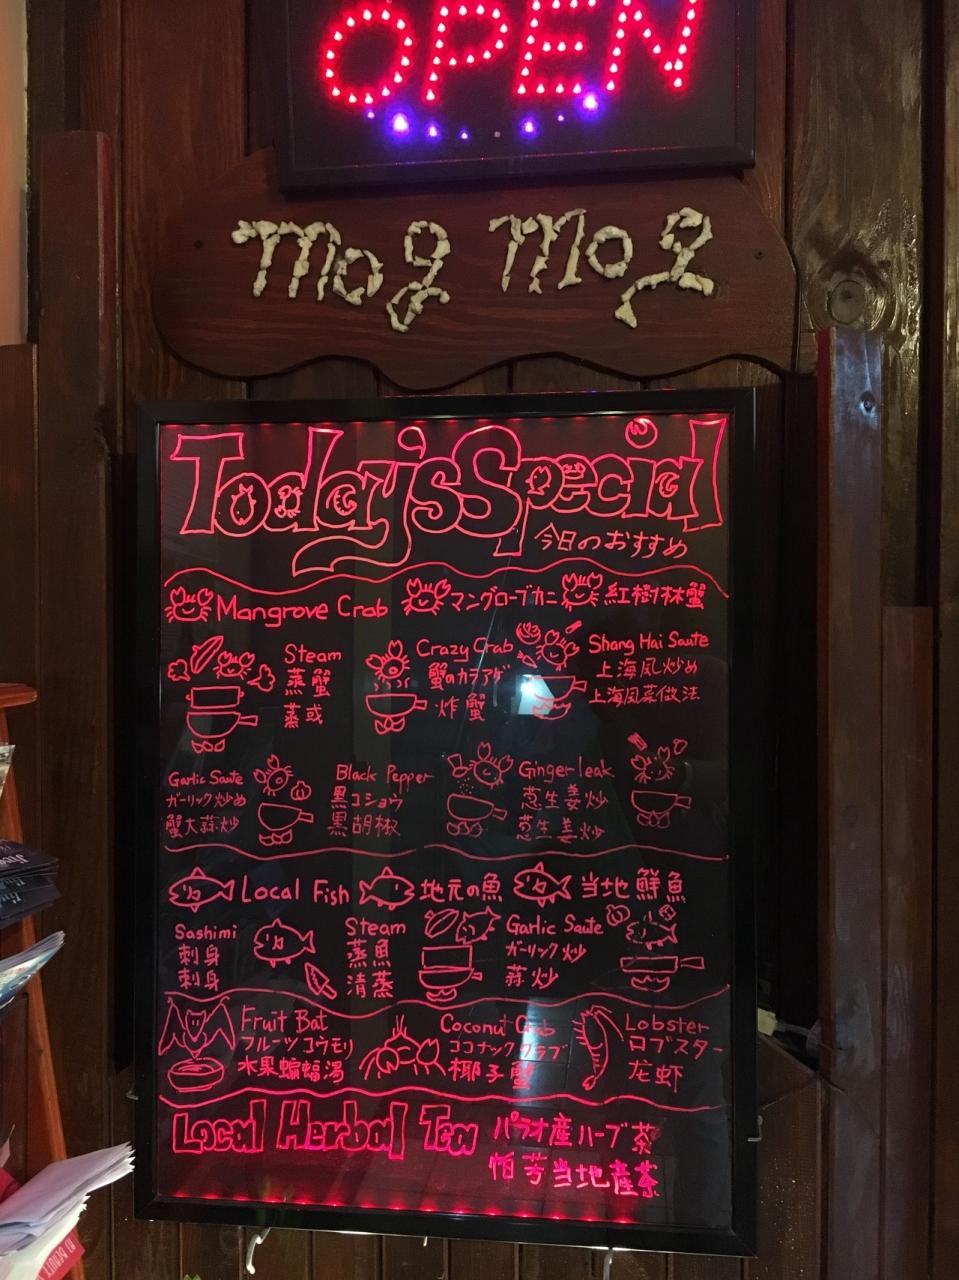 OPEN
Mog Mog
Today's Special
今日のおすすめ
Mangrove Crab マングローブカニ 紅樹林蟹
Steam
蒸蟹
蒸或
Crazy Crab
蟹のカラアゲ
炸蟹
Shang Hai Saute
上海風炒め
上海風菜做法
Garlic Saute
ガーリック炒め
蟹大蒜炒
Black Pepper
黒コショウ
黒胡椒
Ginger leak
葱生姜炒
葱生姜炒
Local Fish 地元の魚 当地鮮魚
Sashimi
刺身
刺身
Steam
蒸魚
清蒸
Garlic Saute
ガーリック炒
蒜炒
Fruit Bat
フルーツコウモリ
水果蝙蝠湯
Coconut Crab
ココナックラブ
椰子蟹
Lobster
ロブスター
龙虾
Local Herbal Tea パラオ産ハーブ茶
怕芳当地産茶